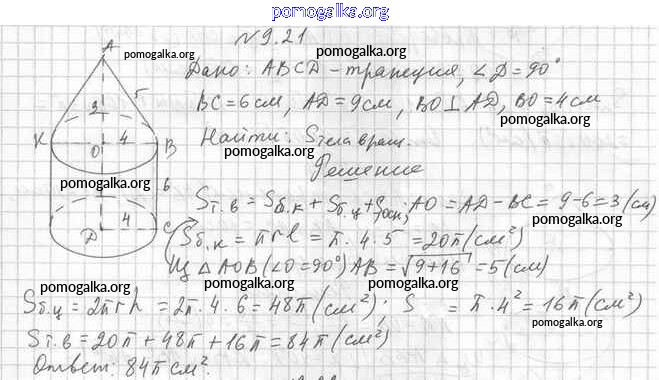 pomogalka.org
N 9.21
pomogalka.org
pomogalka.org
Дано: ABCD - трапеция, ∠D = 90°
BC = 6 см, AD = 9 см, BO ⊥ AD, BO = 4 см
Найти: Sтела вращ.
pomogalka.org
Решение
A
3
5
K
O
4
B
pomogalka.org
6
D
4
C
Sт.в = Sб.к + Sб.ц + Sосн; AO = AD - BC = 9 - 6 = 3 (см)
pomogalka.org
pomogalka.org
Sб.к = πrl = π · 4 · 5 = 20π (см²)
Из △AOB (∠O = 90°) AB = √9+16 = 5 (см)
pomogalka.org
pomogalka.org
pomogalka.org
Sб.ц = 2πrh = 2π · 4 · 6 = 48π (см²); S = π · 4² = 16π (см²)
pomogalka.org
Sт.в = 20π + 48π + 16π = 84π (см²)
Ответ: 84π см².
pomogalka.org